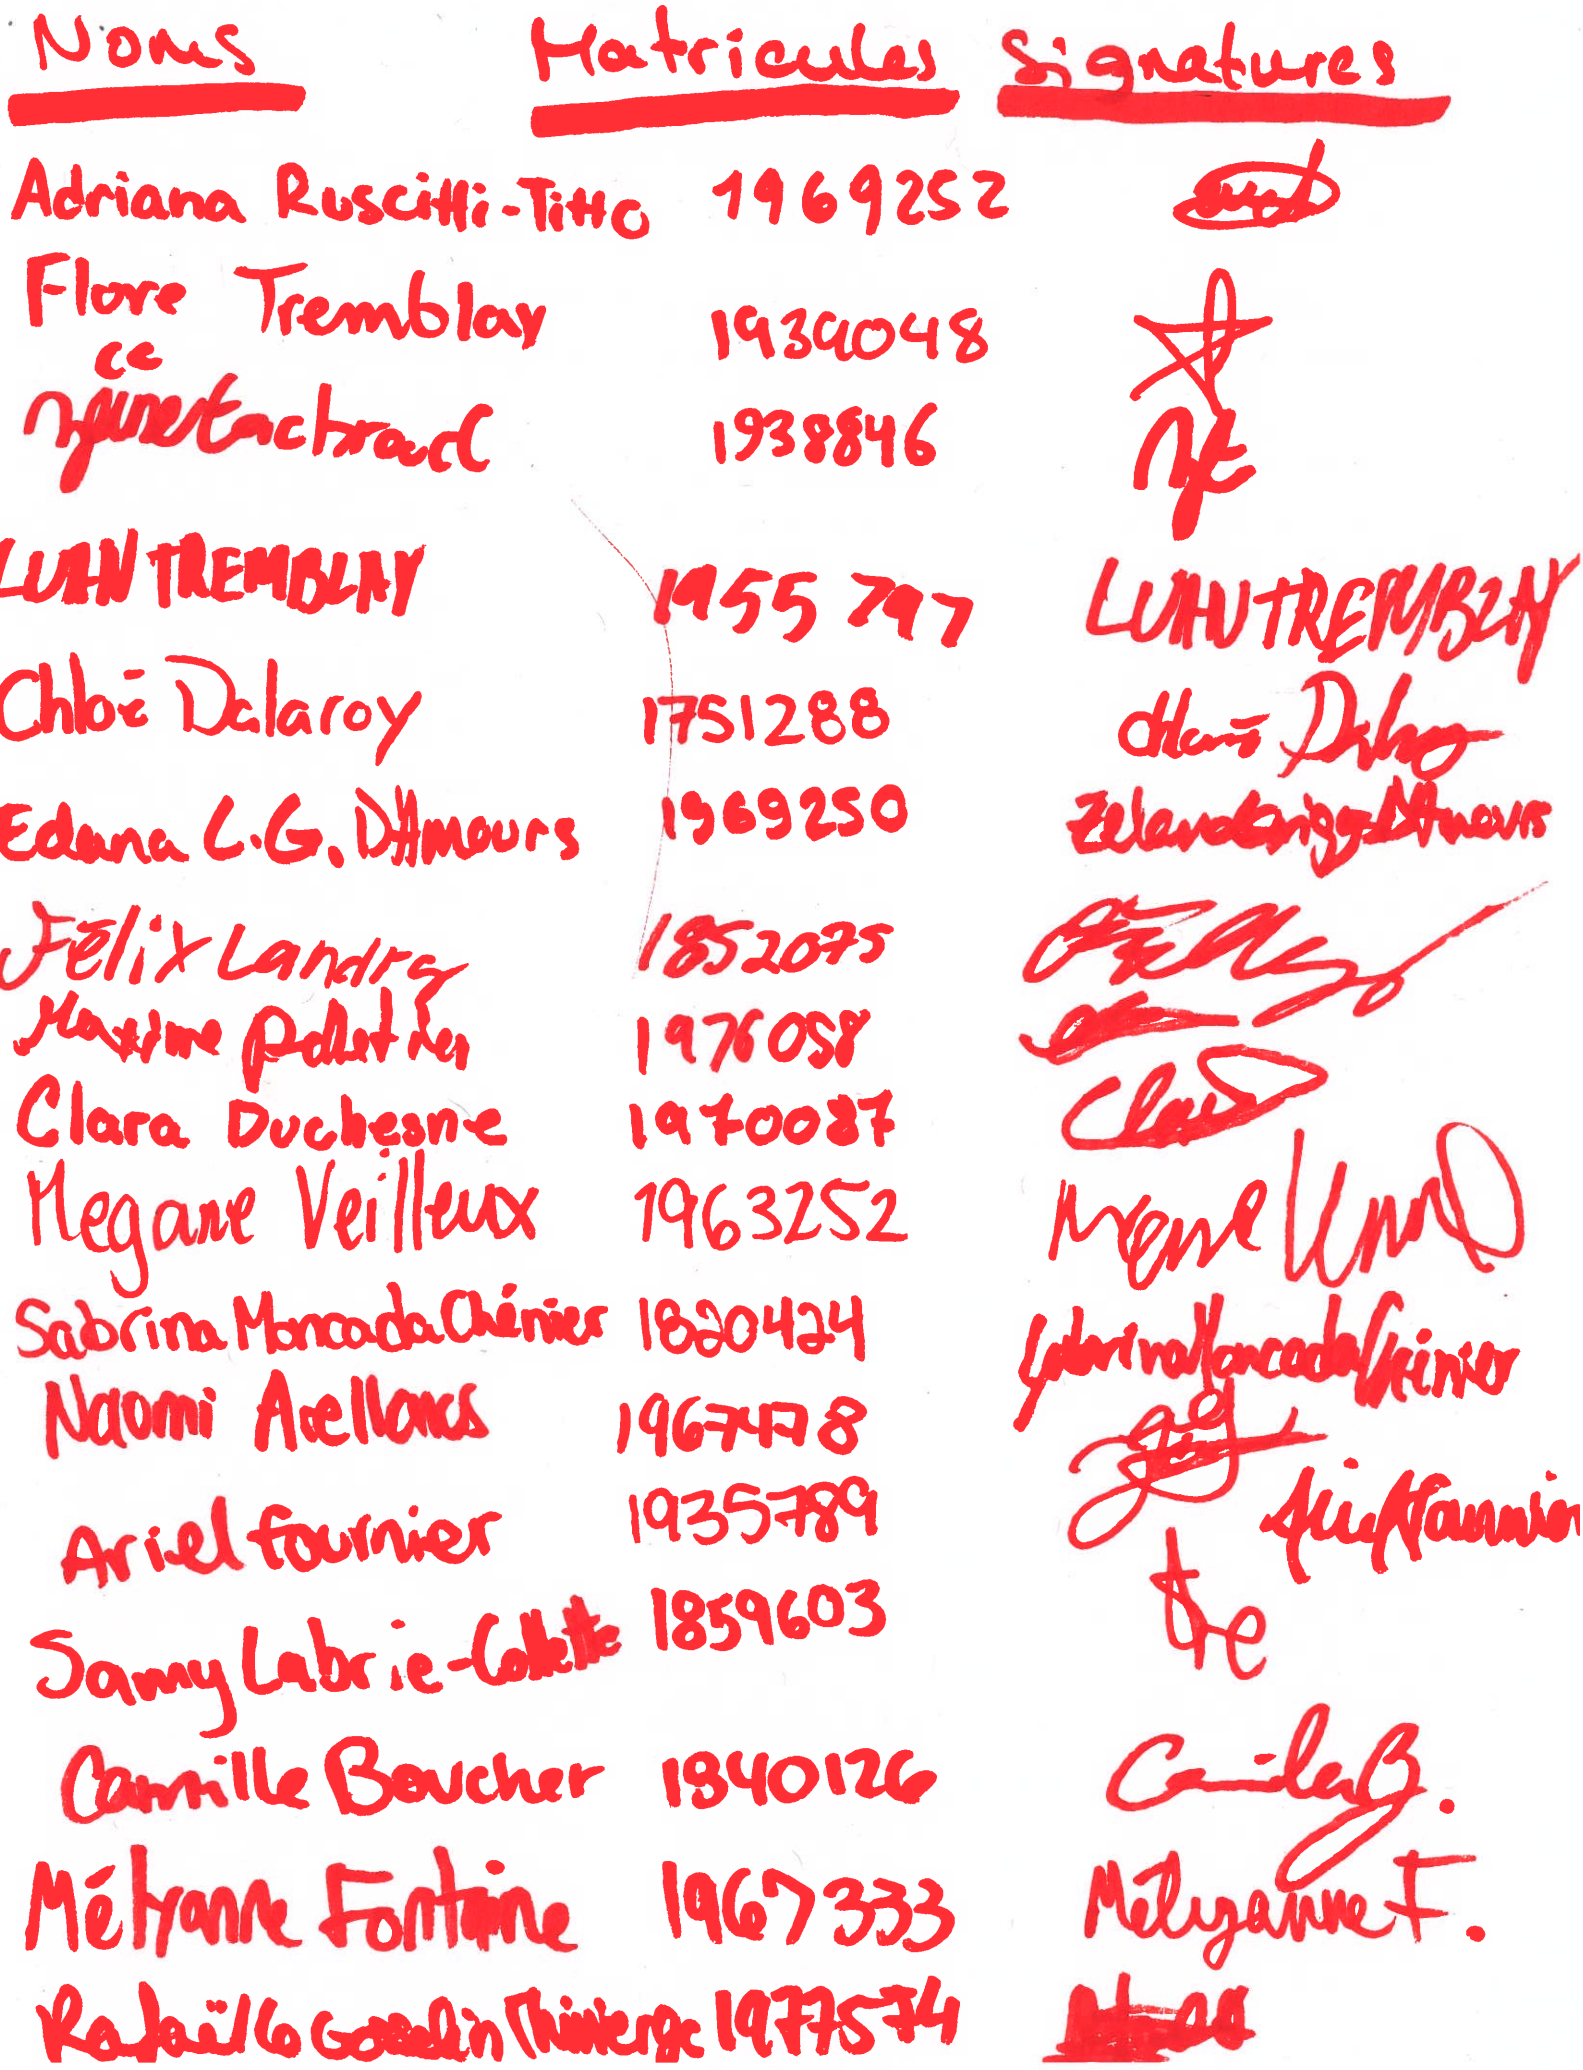 Noms Matricules Signatures
Adriana Ruscitti-Titto 1969252
Flore Tremblay 1939048
1938846
LUAN TREMBLAY 1955797 LUAN TREMBLAY
Chloë Dalaroy 1751288
Edana L.G. D'Amours 1969250
Félix Landry 1852075
Maxime Pelletier 1976058
Clara Duchesne 1970087
Megane Veilleux 1963252
Sabrina Moncada Chénier 1820424 Sabrina Moncada Chénier
Naomi Arellanos 1967478
Ariel Fournier 1935789 Ariel Fournier
Samy Labrie-Collette 1859603
Camille Boucher 1840126 Camille B.
Mélyanne Fontaine 1967333 Mélyanne F.
Rafaëllo Gosselin 1977574